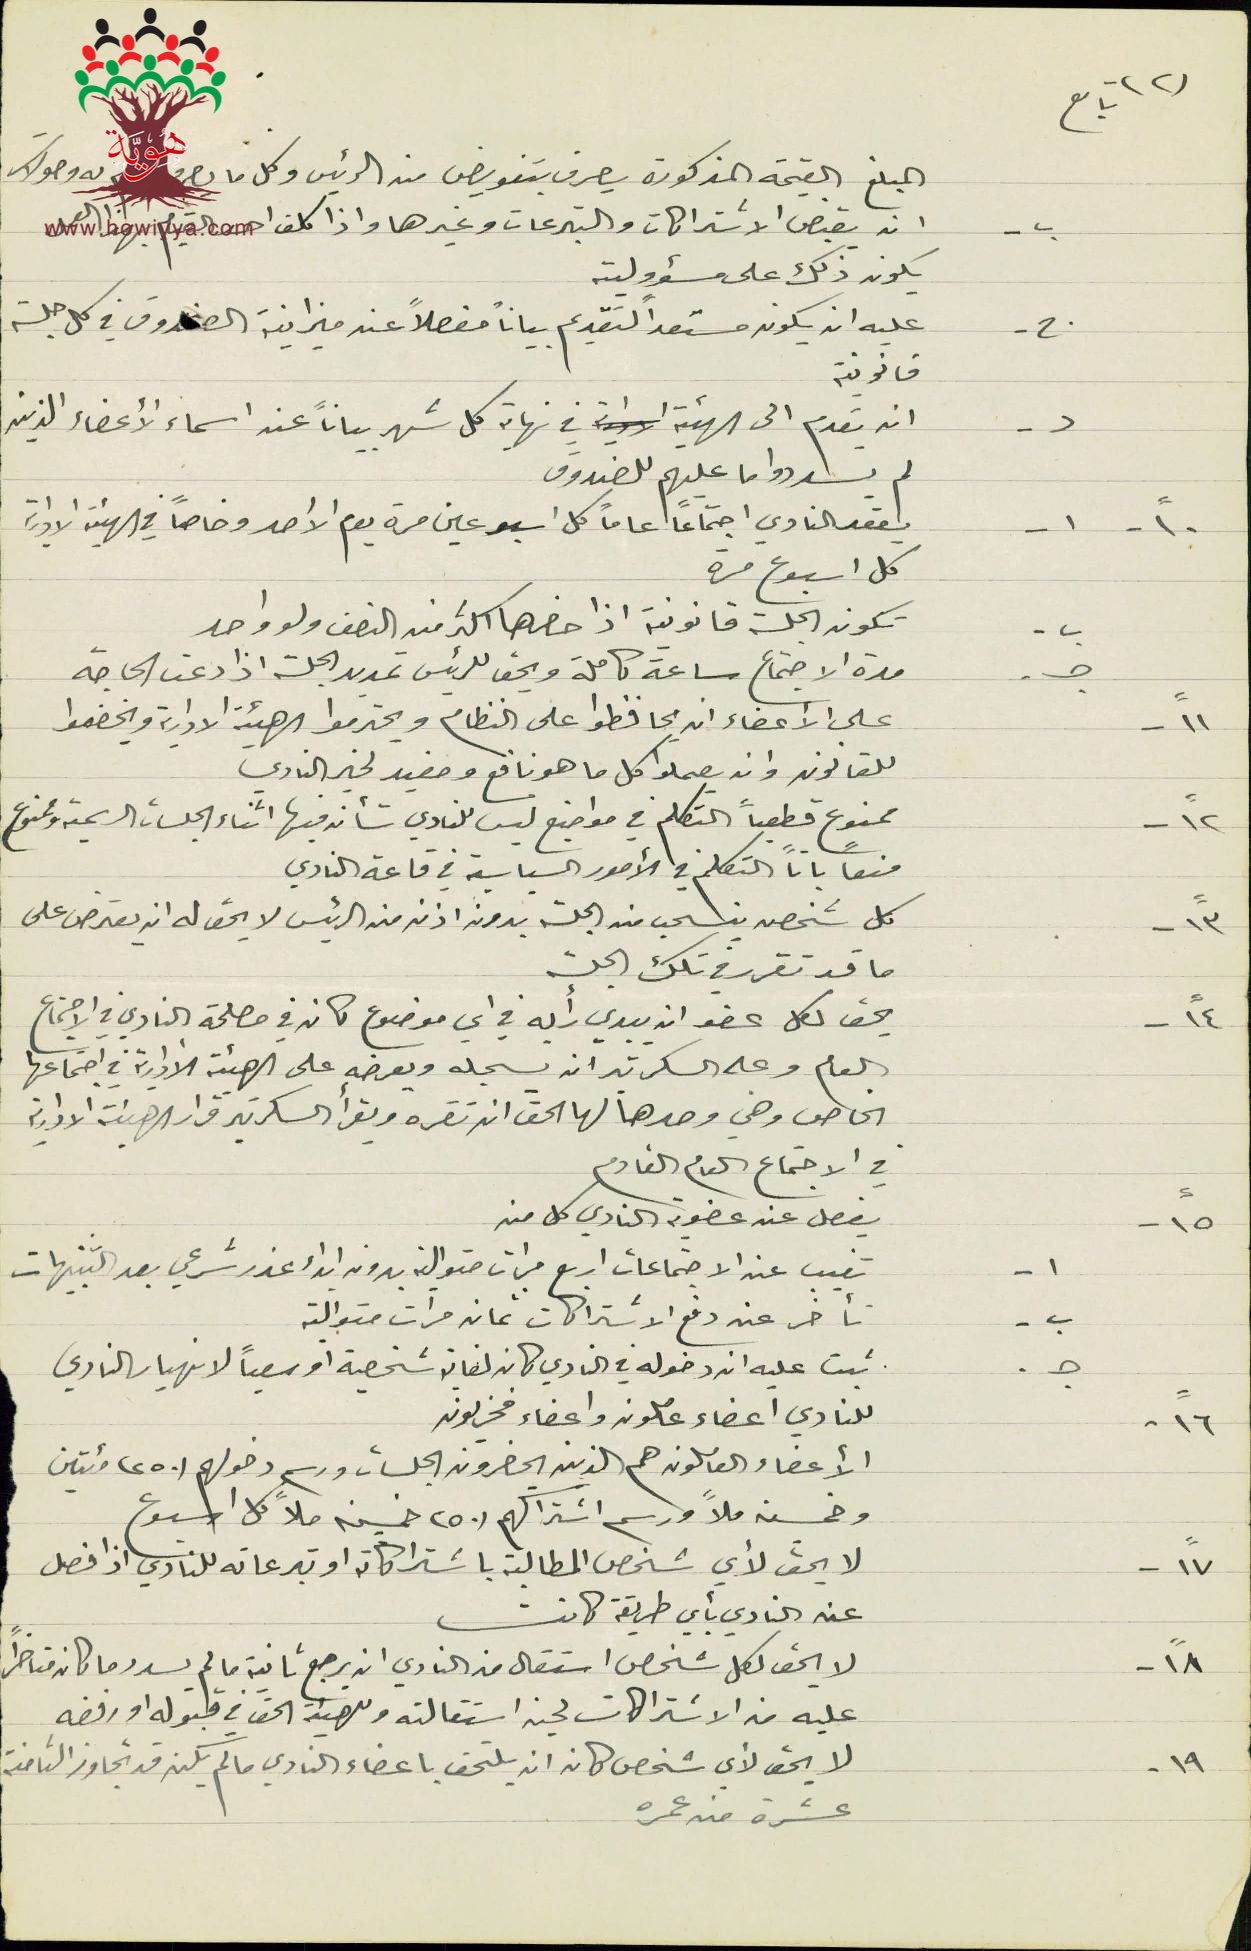 (٢٢) تابع
هُوِيَّة
www.howiyya.com
المبلغ القيمة المذكورة يصرف بتفويض من الرئيس وكل ما به وصولات
ب - ان يقبض الاشتراكات والتبرعات وغيرها واذا كلف احد القيام بهذا العمل
يكون ذلك على مسؤوليته
ج - عليه ان يكون مستعداً لتقديم بياناً مفصلاً عن ميزانية الصندوق في كل جلسة
قانونية
د - ان يقدم الى الهيئة الادارية في نهاية كل شهر بياناً عن اسماء الأعضاء الذين
لم يسددوا ما عليهم للصندوق
١٠ً - ا - يعقد النادي اجتماعاً عاماً كل اسبوعين مرة يوم الاحد وخاصاً في الهيئة الادارية
كل اسبوع مرة
ب - تكون الجلسة قانونية اذا حضرها اكثر من النصف ولو واحد
جـ - مدة الاجتماع ساعة كاملة ويحق للرئيس تمديد الجلسة اذا دعت الحاجة
١١ً - على الأعضاء ان يحافظوا على النظام ويحترموا الهيئة الادارية ويخضعوا
للقانون وان يعملوا كل ما هو نافع ومفيد لخير النادي
١٢ً - ممنوع قطعياً التكلم في مواضيع ليس للنادي شأن فيها اثناء الجلسات الرسمية وممنوع
منعاً باتاً التكلم في الأمور السياسية في قاعة النادي
١٣ً - كل شخص ينسحب من الجلسة بدون اذن من الرئيس لا يحق له ان يعترض على
ما قد تقرر في تلك الجلسة
١٤ً - يحق لكل عضو ان يبدي رأيه في اي موضوع كان في مصلحة النادي في الاجتماع
العام وعلى السكرتير ان يسجله ويعرضه على الهيئة الأدارية في اجتماعها
الخاص وهي وحدها لها الحق ان تقره ويقرأ السكرتير قرار الهيئة الادارية
في الاجتماع العام القادم
١٥ً - يفصل عن عضوية النادي كل من
ا - تغيب عن الاجتماعات اربع مرات متوالية بدون ابداء عذر شرعي بعد التنبيهات
ب - تأخر عن دفع الاشتراكات ثمان مرات متوالية
جـ - ثبت عليه ان دخوله في النادي كان لغاية شخصية او سعياً لانهيار النادي
١٦ً - للنادي اعضاء عاملون واعضاء فخريون
الأعضاء العاملون هم الذين يحضرون الجلسات ورسم دخولهم (٢٥٠) مئتين
وخمسين ملاً ورسم اشتراكهم (٥٠) خمسين ملاً كل اسبوع
١٧ً - لا يحق لأي شخص المطالبة باشتراكاته او تبرعاته للنادي اذا فصل
عن النادي بأي طريقة كانت
١٨ً - لا يحق لكل شخص استقال من النادي ان يرجع ثانية ما لم يسدد ما كان متأخراً
عليه من الاشتراكات لحين استقالته وللهيئة الحق في قبوله او رفضه
١٩ - لا يحق لأي شخص كان ان يلتحق باعضاء النادي ما لم يكن قد تجاوز الثامنة
عشرة من عمره